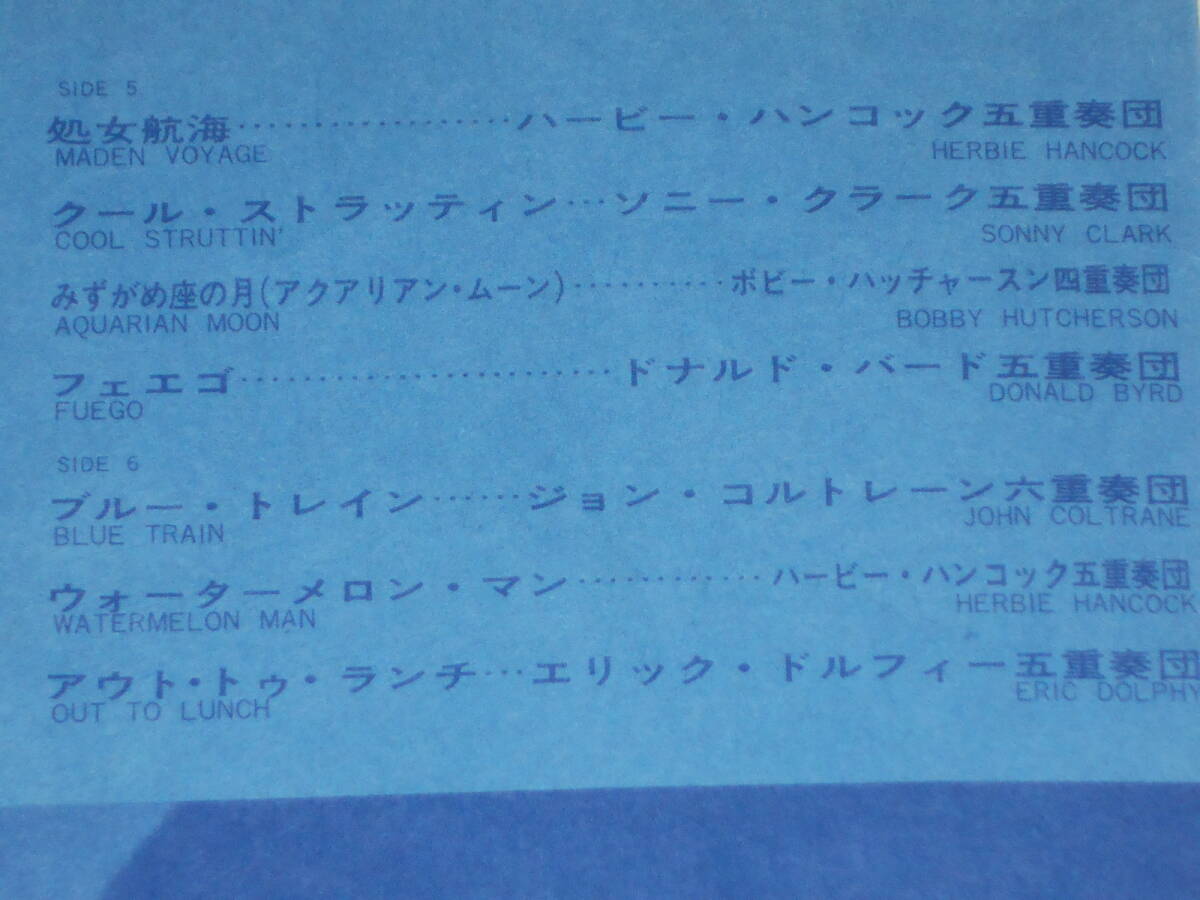 SIDE 5
処女航海………………ハービー・ハンコック五重奏団
MADEN VOYAGE HERBIE HANCOCK
クール・ストラッティン…ソニー・クラーク五重奏団
COOL STRUTTIN' SONNY CLARK
みずがめ座の月(アクアリアン・ムーン)…………ボビー・ハッチャースン四重奏団
AQUARIAN MOON BOBBY HUTCHERSON
フェエゴ……………………ドナルド・バード五重奏団
FUEGO DONALD BYRD
SIDE 6
ブルー・トレイン……ジョン・コルトレーン六重奏団
BLUE TRAIN JOHN COLTRANE
ウォーターメロン・マン…………ハービー・ハンコック五重奏団
WATERMELON MAN HERBIE HANCOCK
アウト・トゥ・ランチ…エリック・ドルフィー五重奏団
OUT TO LUNCH ERIC DOLPHY